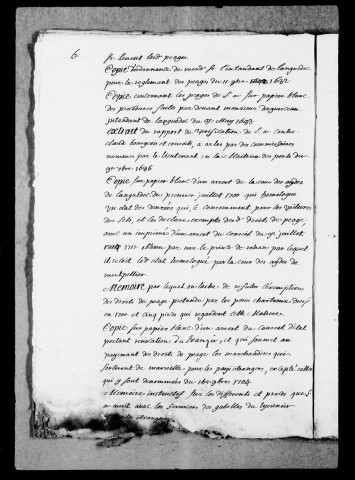 6.
se levent lesd. peages.
Copie d'ordonnance de mond. sr. l'intendant de languedoc
pour le reglement des peages du 11 9bre 1682
Copie concernant les peages de S. a sur papier blanc
des procedures faites par devant monsieur daguesseau
intendant de languedoc du May
extrait du rapport de verification de S. a contre
claude bourgeois et consorts, a arles par des commissaires
nommés par le lieutenant en la Maitrise des ports du
9e 7bre 1696
Copie sur papier blanc d'un arrest de la cour des aydes
de languedoc du premier juillet 1701 qui homologue
un etat des denrées qui se consomment pour les voitures
des sels, et les declare exempts desd. droits de peage,
avec un imprimé d'un arrest du conseil du juillet
1717 obtenu par mr. le prince de rohan par lequel
il estoit led. etat homologué par la cour des aydes de
montpellier
Memoire par lequel on tache de refuter l'exemption
des droits de peage pretendus par les peres chartreux
en 1700 et cinq pieces qui regardent cette Matiere.
Copie sur papier blanc d'un arrest du conseil d'etat
portant revocation du transit, et qui soumet au
payement des droits de peage les marchandises qui
sortiront de marseille, pour les pays etrangers, excepté celles
qui y sont denommées du 16 8bre 1704.
Memoire instructif sur les differents et procés que S.
a avoit avec les fermiers des gabelles du lyonnois
etrangers